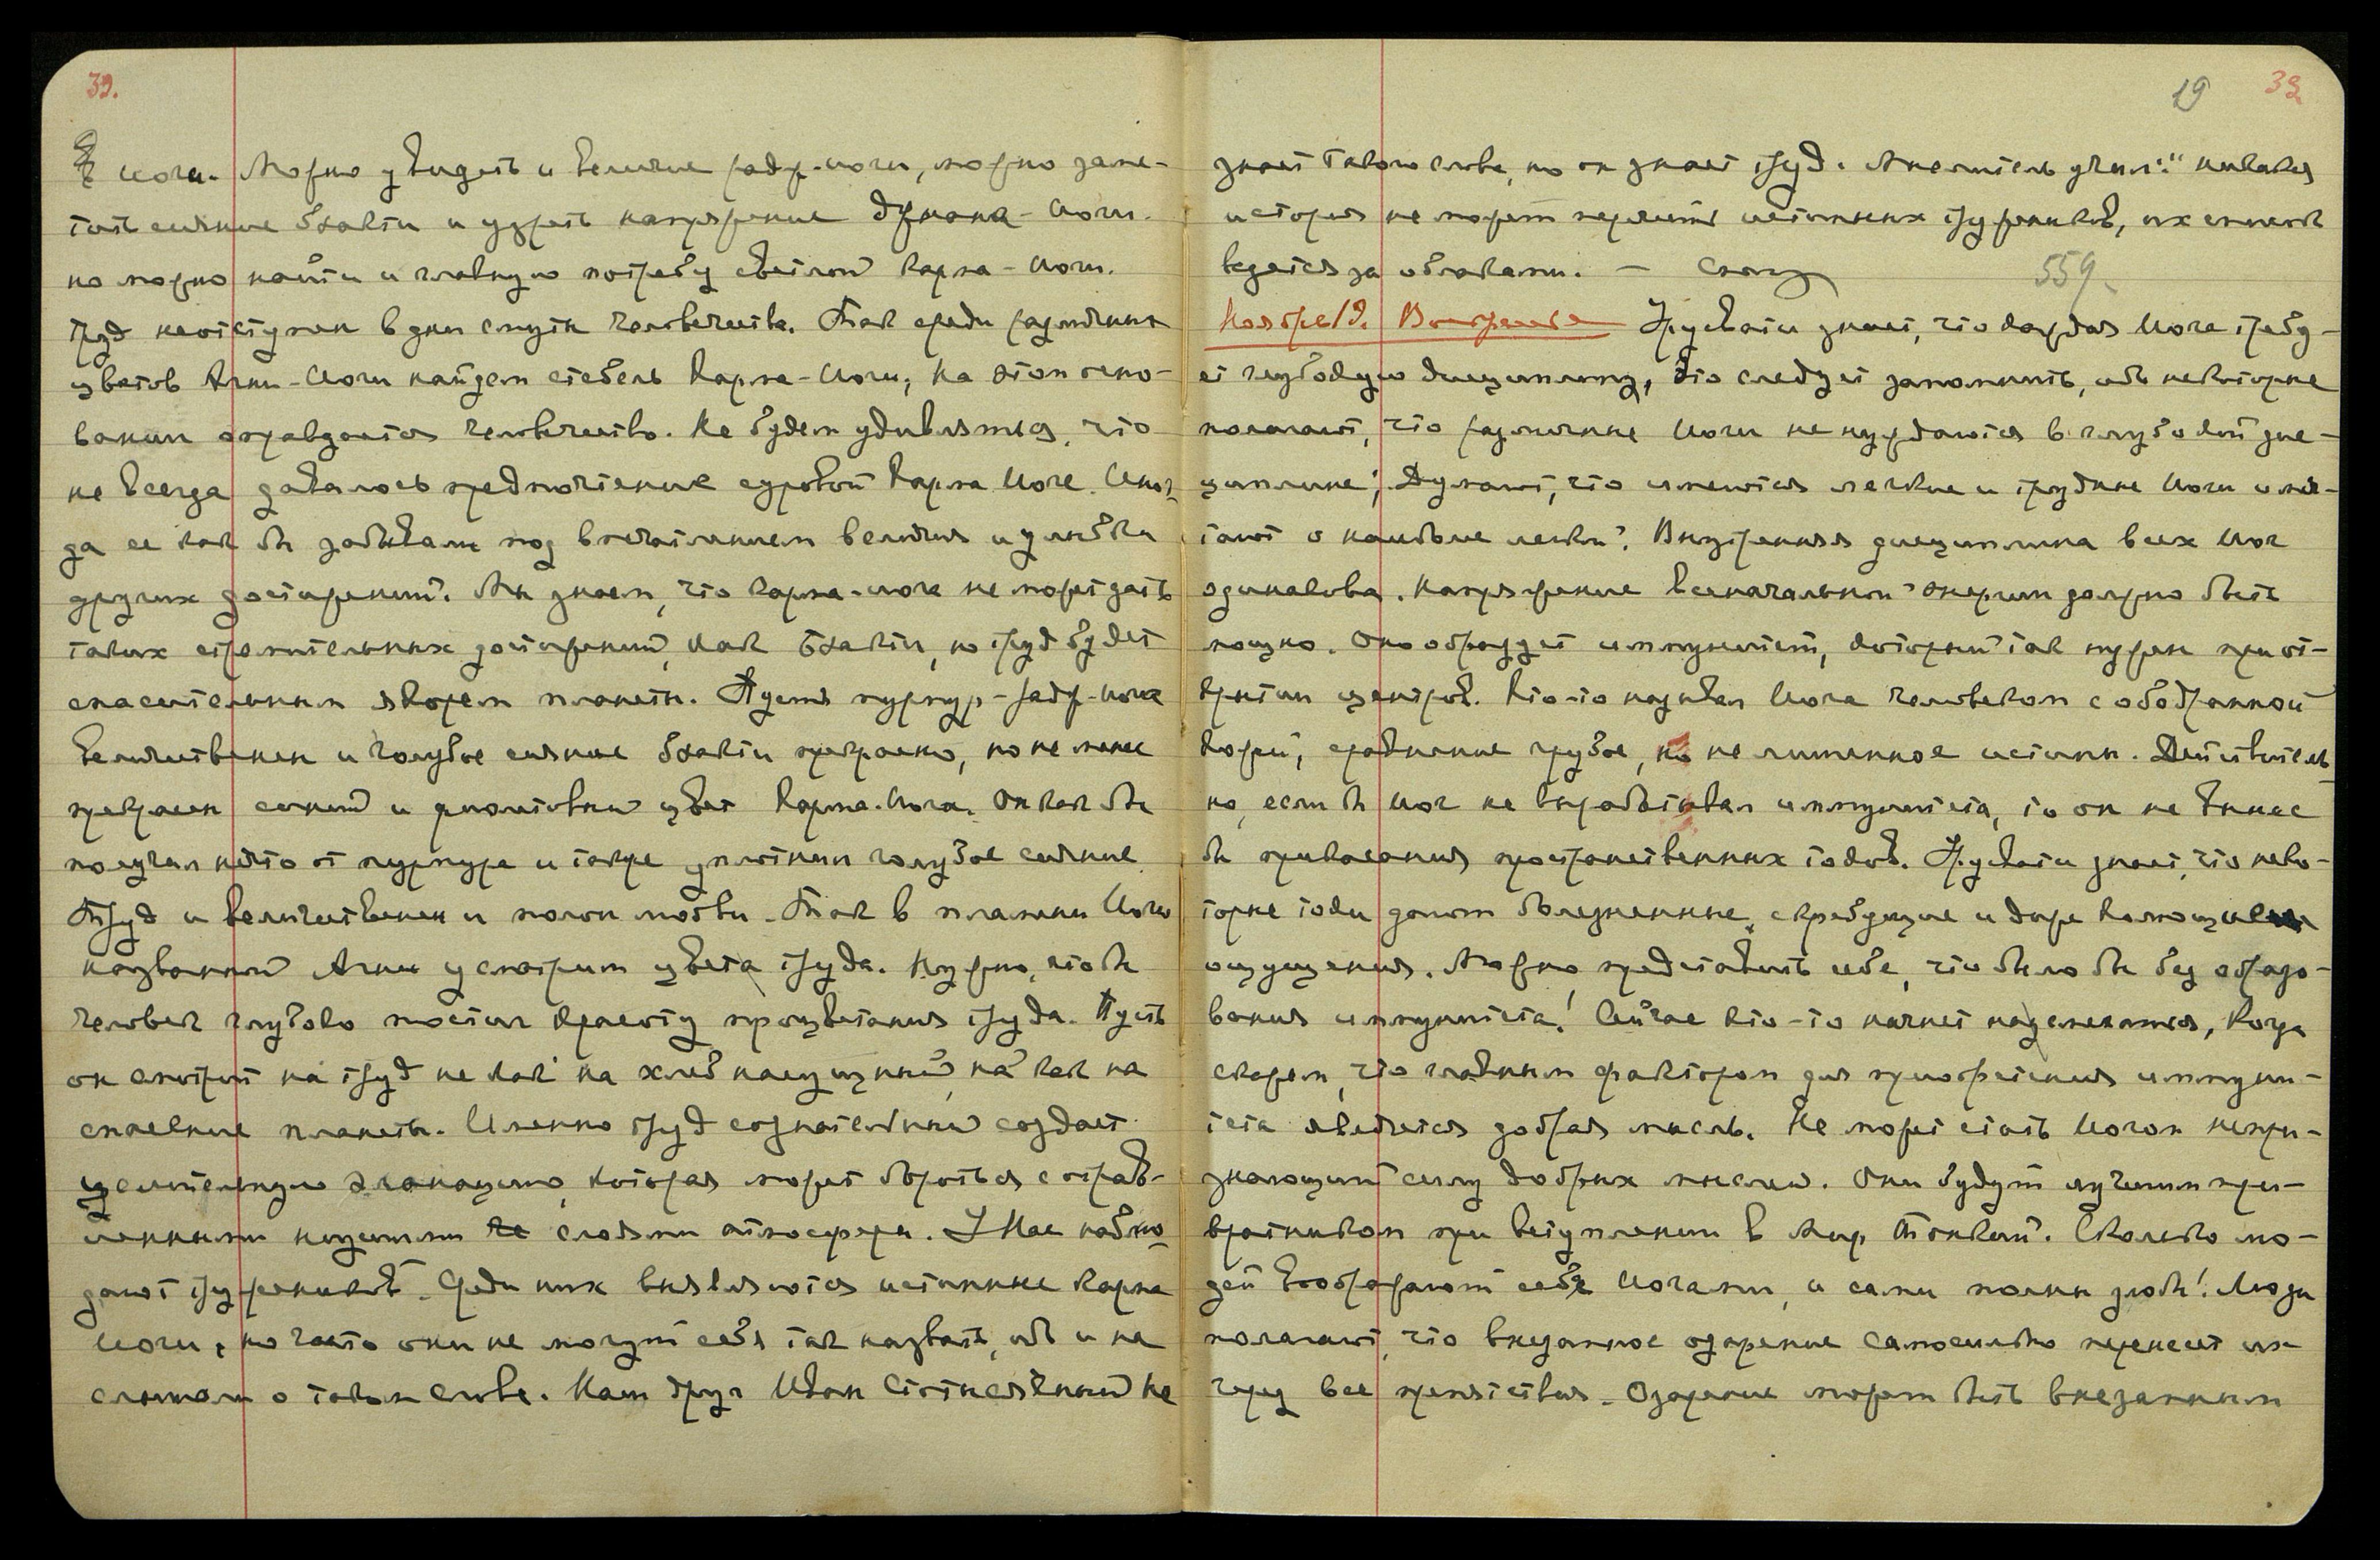 39.
Йоги. Можно увидеть и величие радж-йоги, можно заме-
тить сияние бхакти и узреть напряжение джнана-Йоги.
но можно найти и главную потребу светлой Карма-Йоги.
Труд неотступен в дни смути человечества. Так среди различных
цветов Агни-Йоги найдем стебель Карма-Йоги, на этом осно-
вании оправдается человечество. Не будем удивляться, что
не всегда давалось предпочтение суровой Карма Йоге. Иног-
да ее как бы забывали под впечатлением величия и улыбки
других достижений. Мы знаем, что Карма-йога не может дать
таких стремительных достижений, как Бхакти, но труд будет
спасительным якорем планеты. Пусть пурпур-радж-йога
величественен и голубое сияние бхакти прекрасно, но не менее
прекрасен синий и фиолетовый цвет Карма-Йога. Он как бы
получил нечто от пурпура и также уплотнил голубое сияние
Труд и величественен и полон любви. Так в пламени Йоги
названной Агни усмотрим цвета труда. Нужно, чтобы
человек глубоко постиг красоту процветания труда. Пусть
он смотрит на труд не как на хлеб насущный, но как на
спасение планеты. Именно труд сознательный создает
целительную эманацию, которая может бороться с отрав-
ленными низшими слоями атмосферы. У Нас наблю-
дают тружеников. Среди них выявляются истинные Карма
Йоги, но часто они не могут себя так назвать, ибо и не
слышали о таком слове. Наш друг Иван Стотысячный не
19 39
знает такого слова, но он знает труд. Мыслитель учил: "никакая
история не может перечислить истинных тружеников, их список
ведется за облаками. —
559
Ноябрь 19. Воскресенье Урусвати знает, что каждая Йога требу-
ет глубокую дисциплину, Это следует запомнить, ибо некоторые
полагают, что различные Йоги не нуждаются в глубокой дис-
циплине; Думают, что имеются легкие и трудные Йоги и меч-
тают о наиболее легкой. Внутренняя дисциплина всех Йог
одинакова. Напряжение всеначальной энергии должно быть
мощно. Оно образует иммунитет, который так нужен при от-
крытии центров. Кто-то называл Йога человеком с ободранной
кожей, сравнение грубое, но не лишенное истины. Действитель-
но, если бы Йог не вырабатывал иммунитета, то он не вынес
бы прикасания пространственных токов. Урусвати знает, что неко-
торые токи дают болезненные, скребущие и даже колющие
ощущения. Можно представить себе, что было бы без образо-
вания иммунитета! Сейчас кто-то начнет надсмехаться, когда
скажем, что главным фактором для приобретения иммуни-
тета является добрая мысль. Не может стать Йогом непри-
знающий силу добрых мыслей. Они будут лучшим при-
вратником при вступлении в Мир Тонкий. Сколько лю-
дей воображают себя Йогами, а сами полны злобы! Люди
полагают, что внезапное озарение самосильно перенесет их
через все препятствия. Озарение может быть внезапным